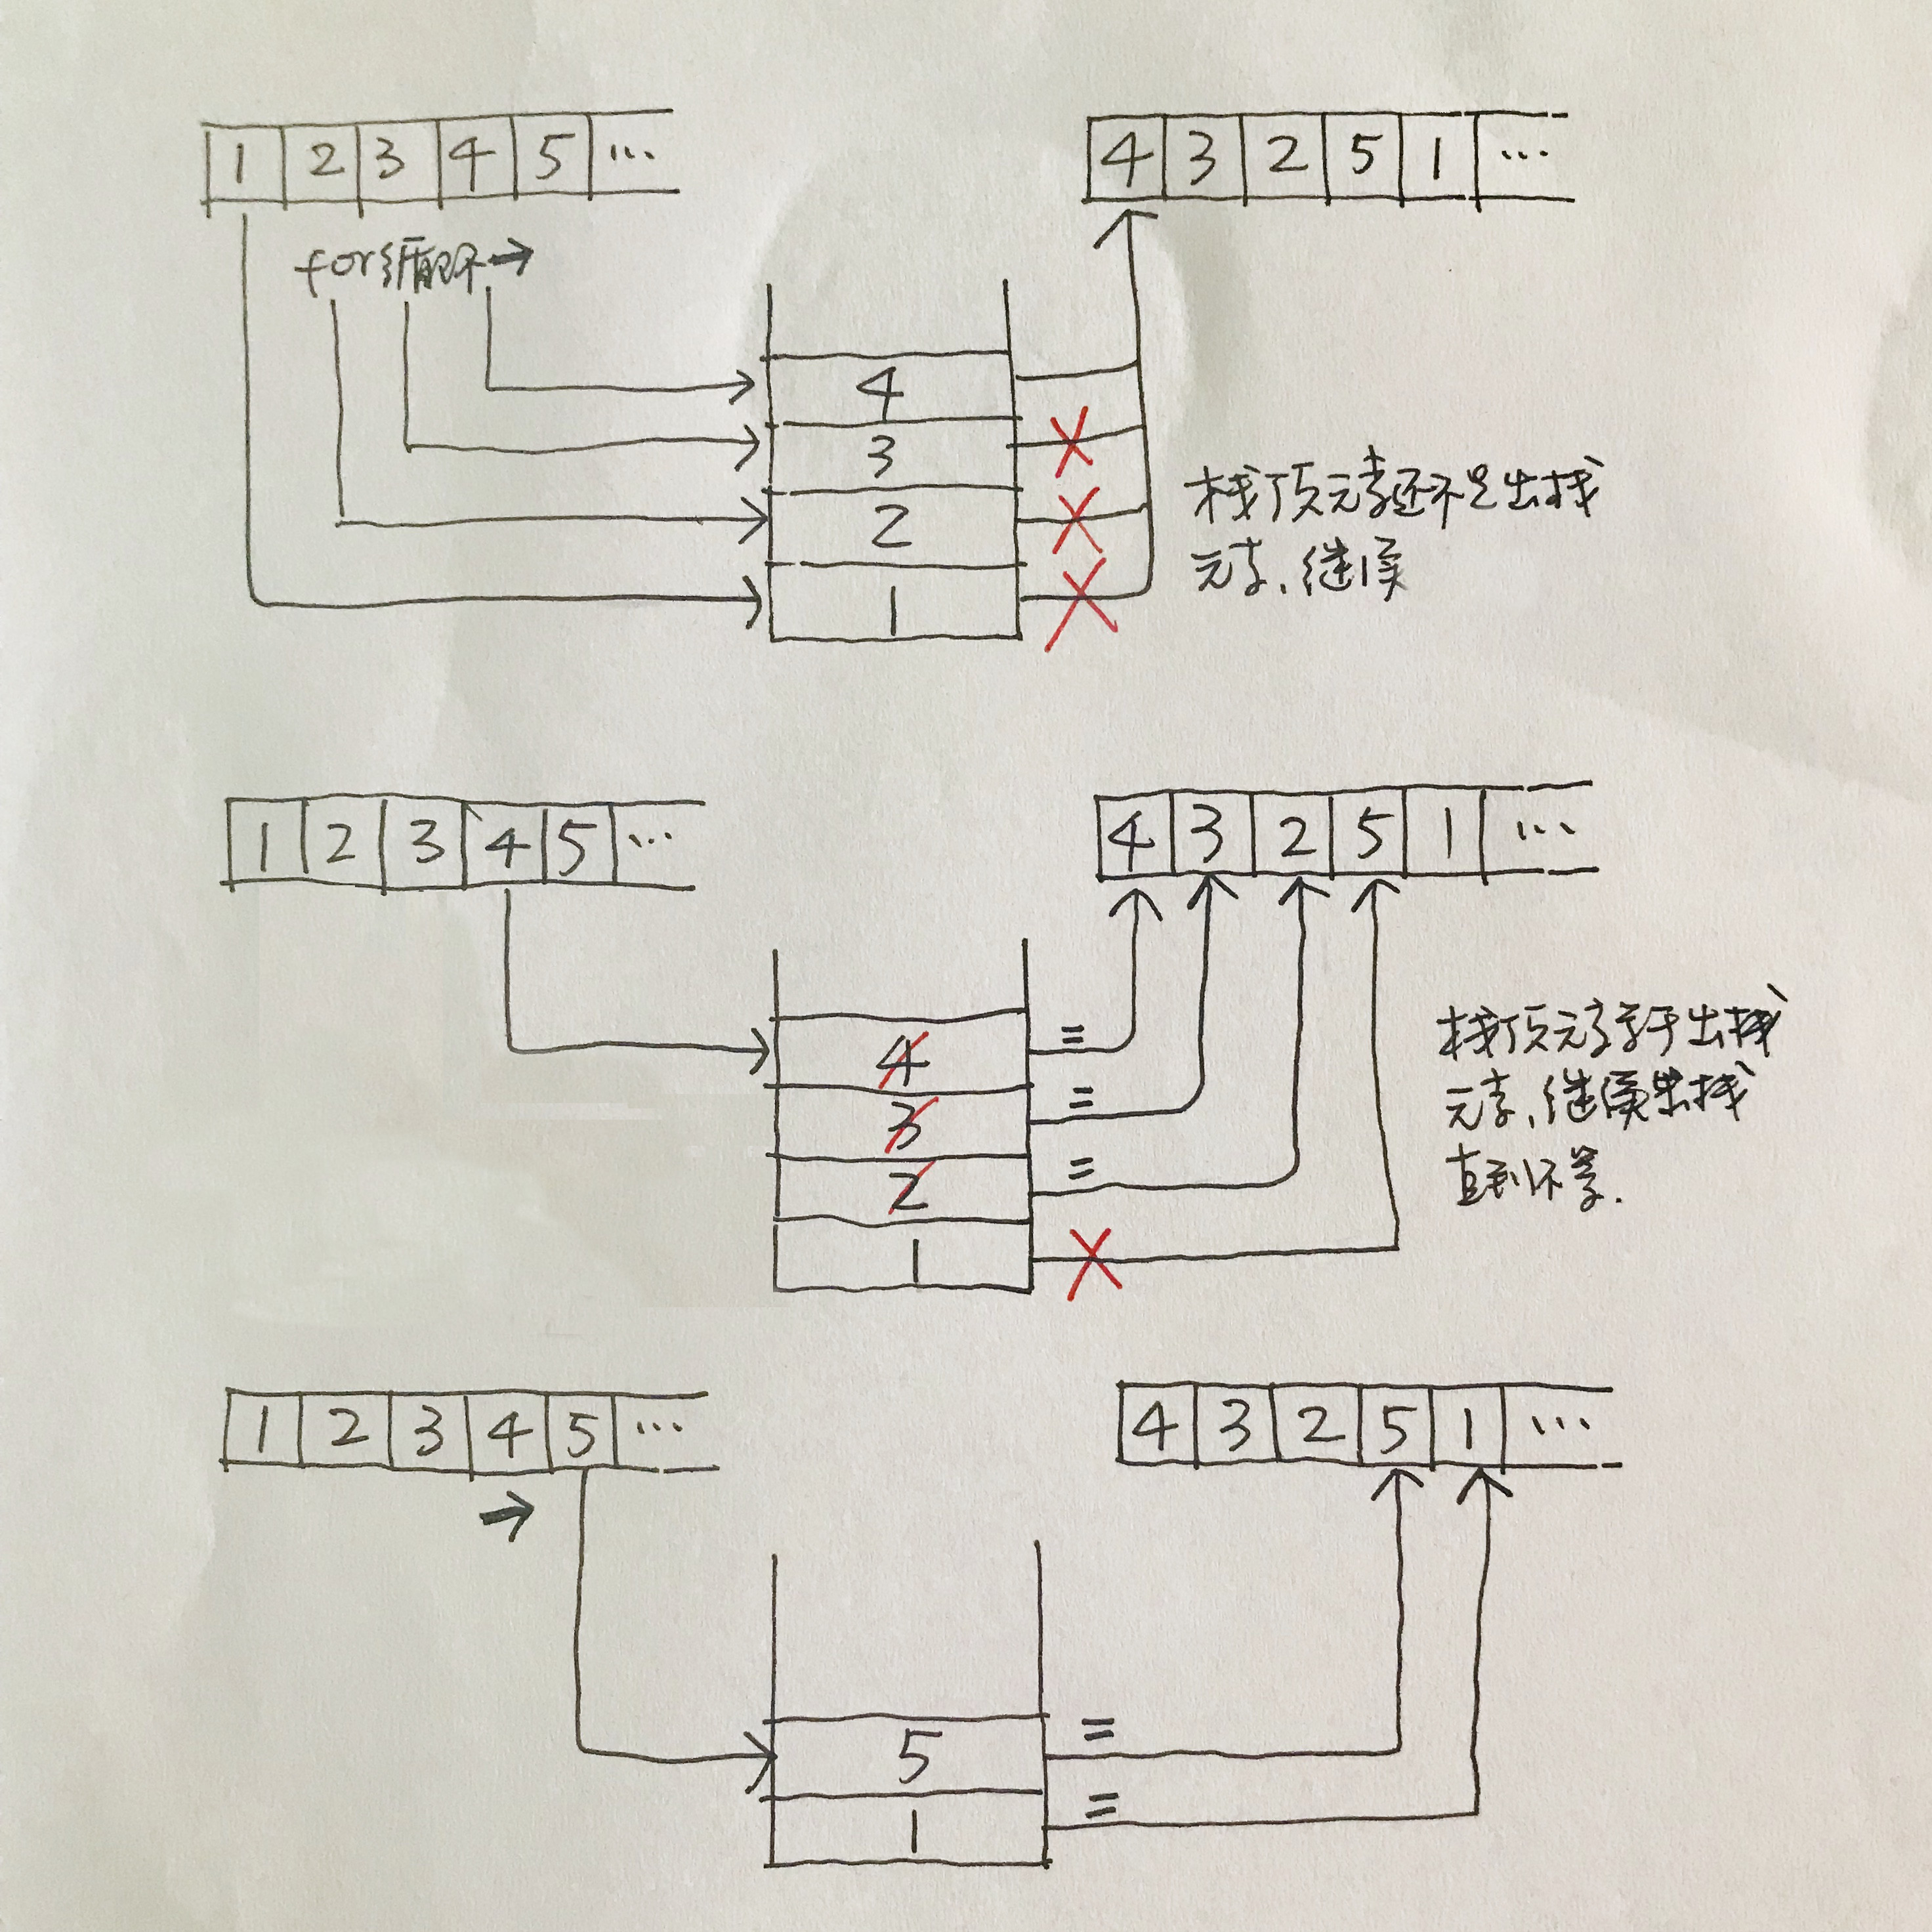 1 2 3 4 5 ...
4 3 2 5 1 ...
for循环→
4
3
2
1
栈顶元素还不是出栈
元素,继续
1 2 3 4 5 ...
4 3 2 5 1 ...
4 =
3 =
2 =
1
栈顶元素等于出栈
元素,继续出栈
直到不等.
1 2 3 4 5 ...
4 3 2 5 1 ...
→
5 =
1 =